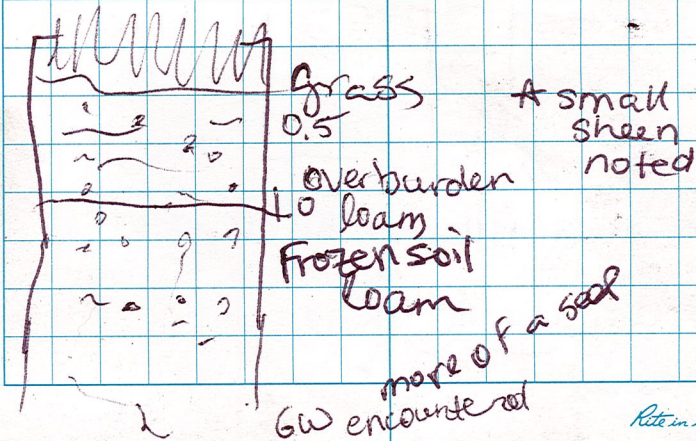 grass
0.5
A small
sheen
noted
overburden
1.0 loam
Frozen soil
loam
more of a seep
GW encountered
Rite in